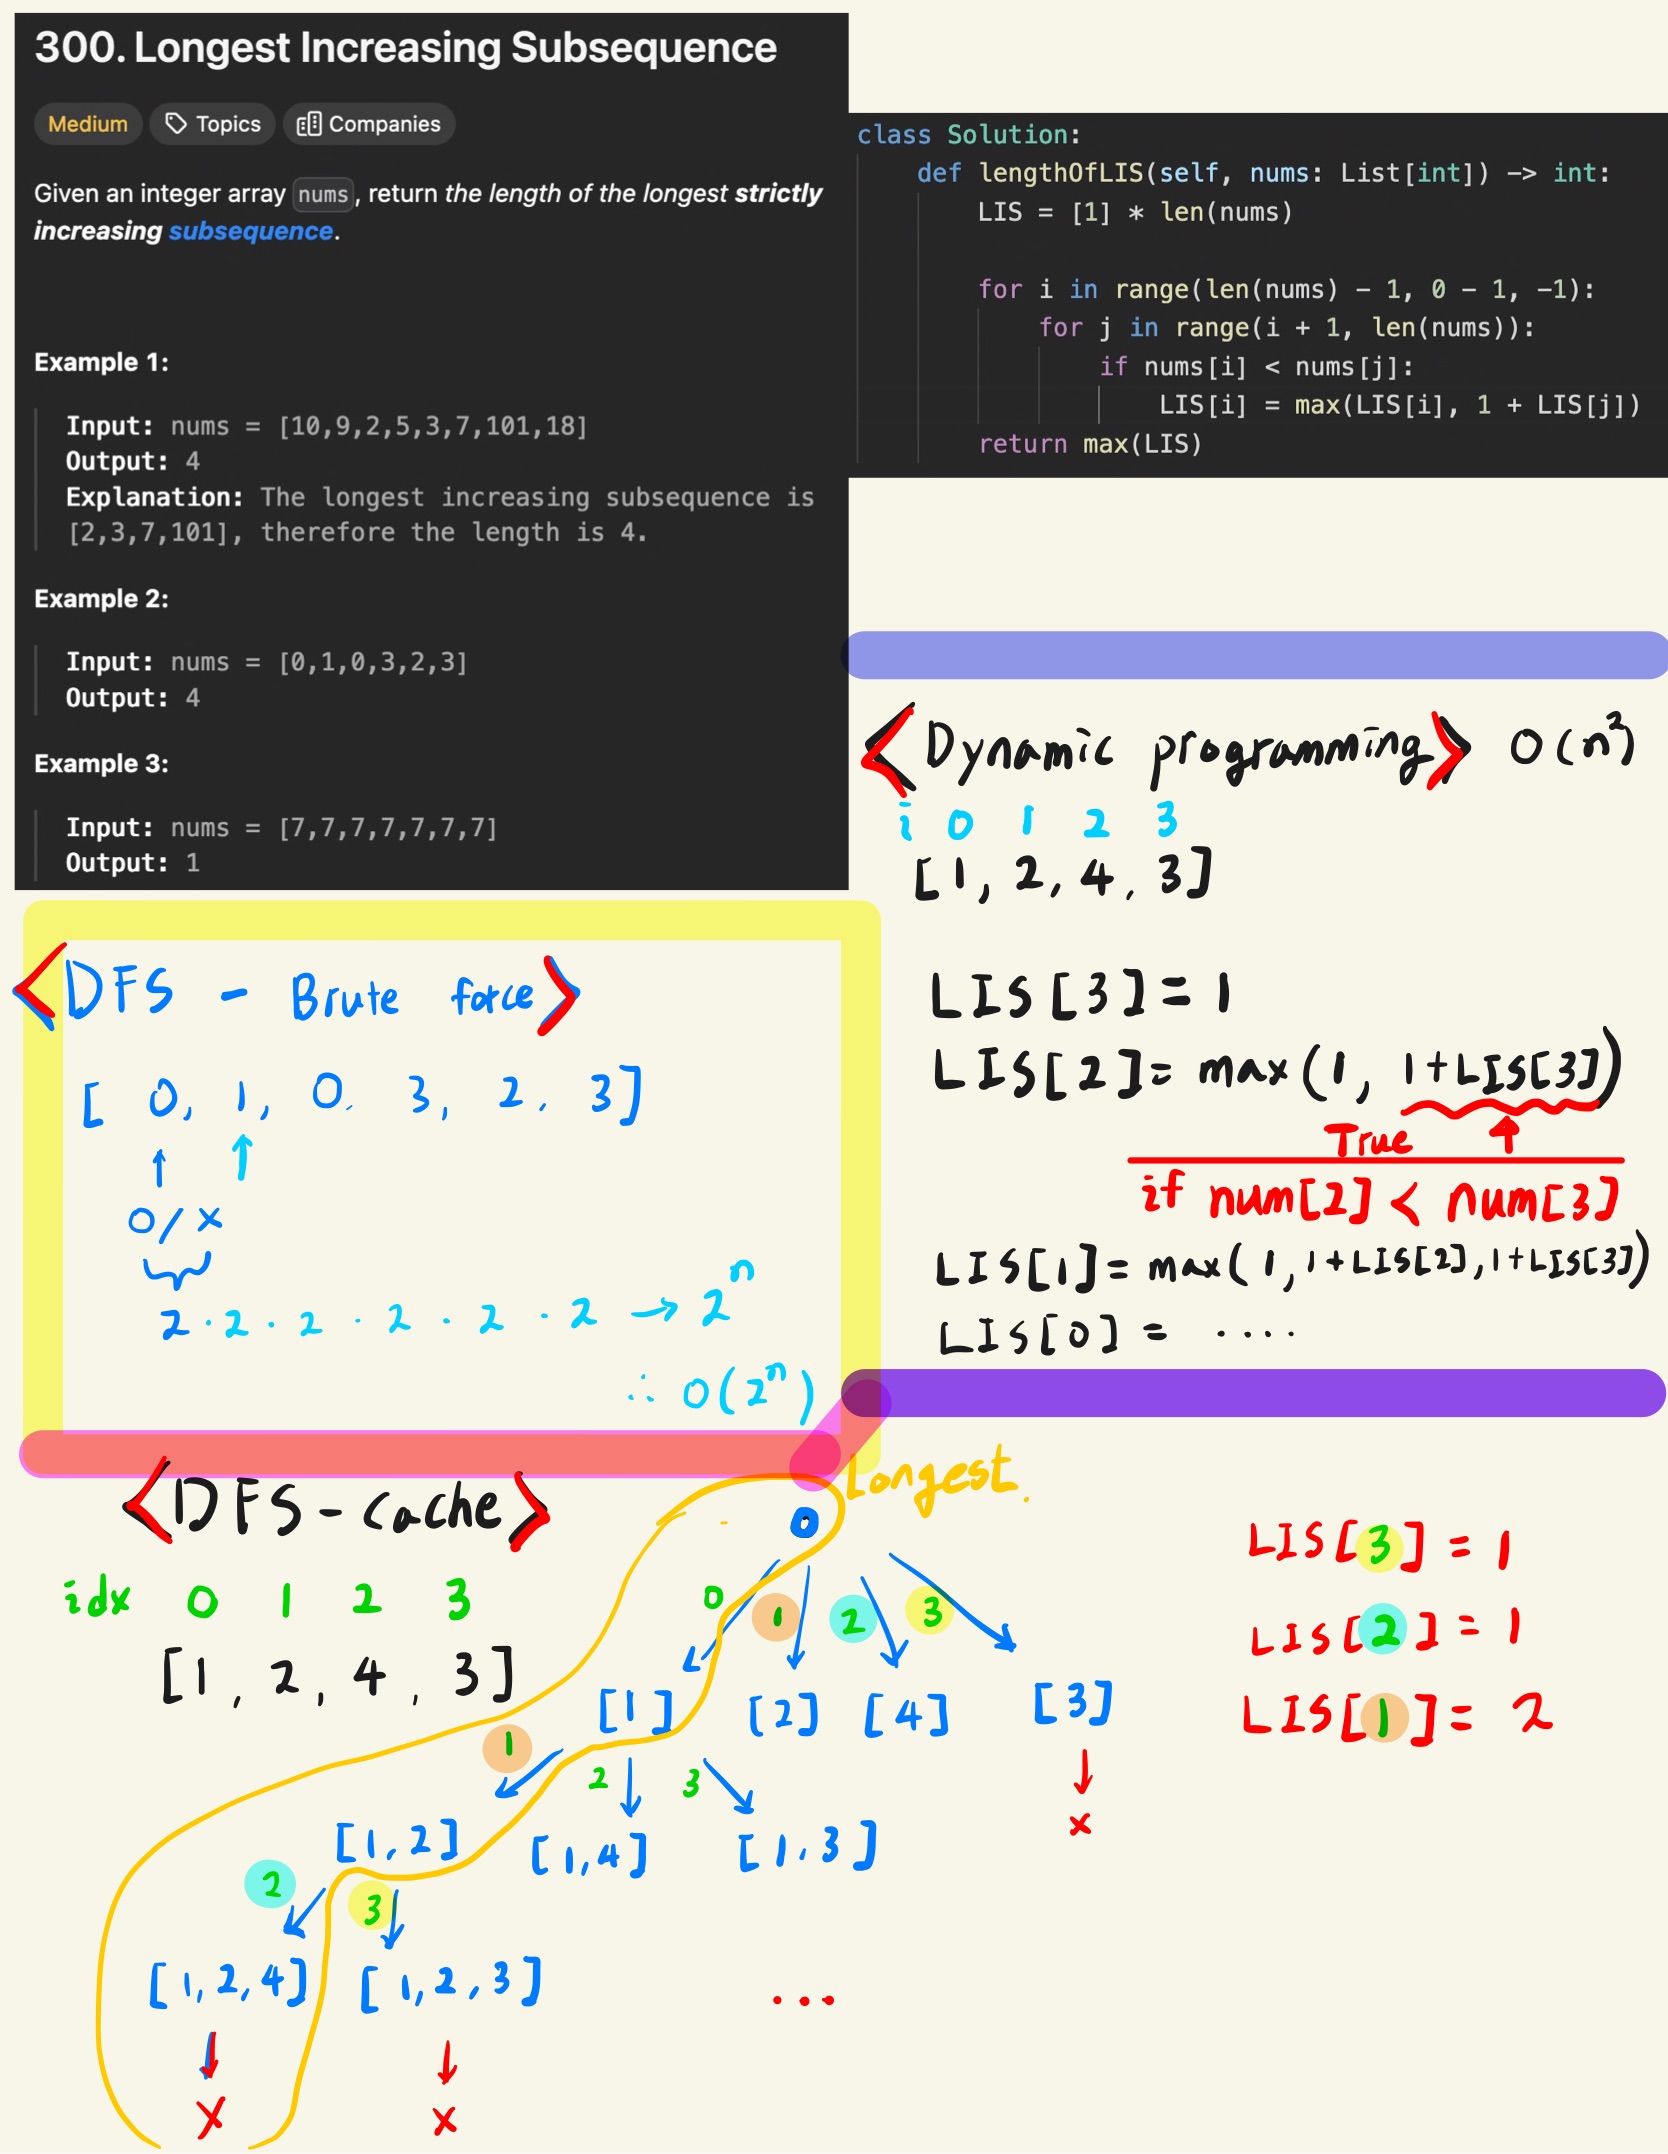 300. Longest Increasing Subsequence
Medium Topics Companies
Given an integer array nums, return the length of the longest strictly
increasing subsequence.
Example 1:
Input: nums = [10,9,2,5,3,7,101,18]
Output: 4
Explanation: The longest increasing subsequence is
[2,3,7,101], therefore the length is 4.
Example 2:
Input: nums = [0,1,0,3,2,3]
Output: 4
Example 3:
Input: nums = [7,7,7,7,7,7,7]
Output: 1
class Solution:
def lengthOfLIS(self, nums: List[int]) -> int:
LIS = [1] * len(nums)
for i in range(len(nums) - 1, 0 - 1, -1):
for j in range(i + 1, len(nums)):
if nums[i] < nums[j]:
LIS[i] = max(LIS[i], 1 + LIS[j])
return max(LIS)
<Dynamic programming> O(n²)
i 0 1 2 3
[1, 2, 4, 3]
LIS[3] = 1
LIS[2] = max(1, 1+LIS[3])
True ↑
if num[2] < num[3]
LIS[1] = max(1, 1+LIS[2], 1+LIS[3])
LIS[0] = ....
<DFS - Brute force>
[ 0, 1, 0, 3, 2, 3]
↑ ↑
O/x
2 · 2 · 2 · 2 · 2 · 2 → 2ⁿ
∴ O(2ⁿ)
<DFS-cache>
idx 0 1 2 3
[1, 2, 4, 3]
Longest.
0
0 1 2 3
[1] [2] [4] [3]
x
1 2 3
[1,2] [1,4] [1,3]
2 3
[1,2,4] [1,2,3] ...
x x
LIS[3] = 1
LIS[2] = 1
LIS[1] = 2